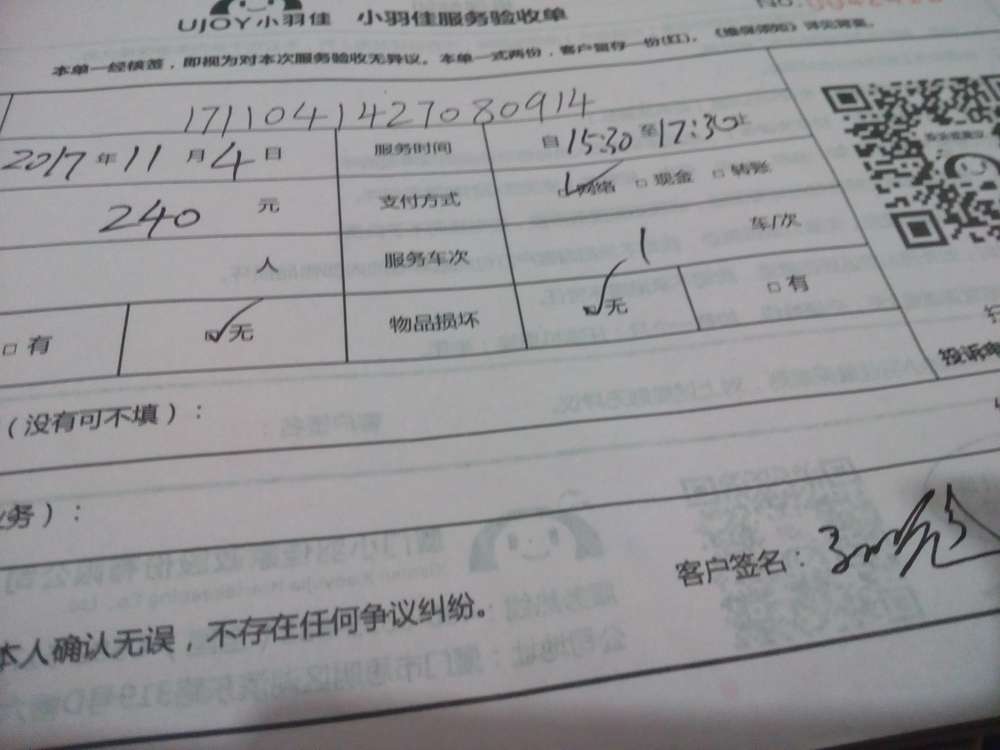 UJOY小羽佳 小羽佳服务验收单
本单一经核签，即视为对本次服务验收无异议。本单一式两份，客户留存一份(红)。
1711041427080914
2017年11月4日 服务时间 自15:30至17:30止
240元 支付方式 网络 □ 现金 □ 转账
人 服务车次 1 车/次
□ 有 无 物品损坏 无 □ 有
投诉
（没有可不填）：
务）：
客户签名：
本人确认无误，不存在任何争议纠纷。